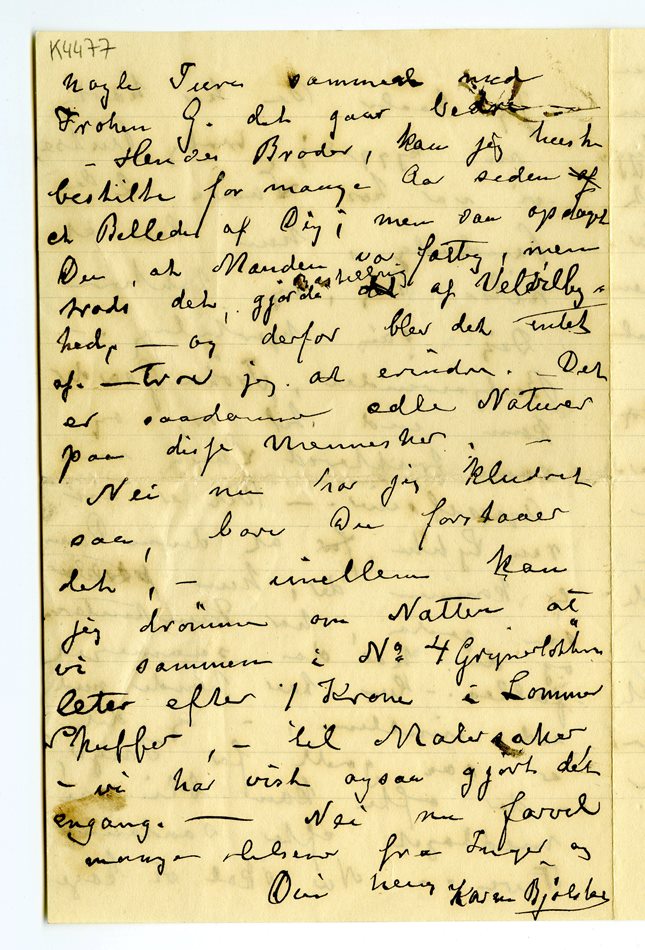 K4477
nogle Ture sammen med
Frøken G. det gaar bedre —
— Hendes Broder, kan jeg huske
bestilte for mange Aar siden af
et Billede af Dig; men saa opdaget
Du, at Manden var fattig, men
trods det, gjorde Bestilling af Velvillig-
hed, — og derfor blev det intet
af. — Tror jeg at erindre. — Det
er saadanne ædle Naturer
paa disse Mennesker. —
Nei nu har jeg kludret
saa, bare Du forstaaer
det, — imellem kan
jeg drömme om Natten at
vi sammen i No 4 Grünerløkken
leter efter 1 Krone i Lommer
Skuffer, — til Malersaker
– vi har vist ogsaa gjort det
engang. — Nei nu farvel
mange Hilsener fra Inger og
Din heng Karen Bjølstad